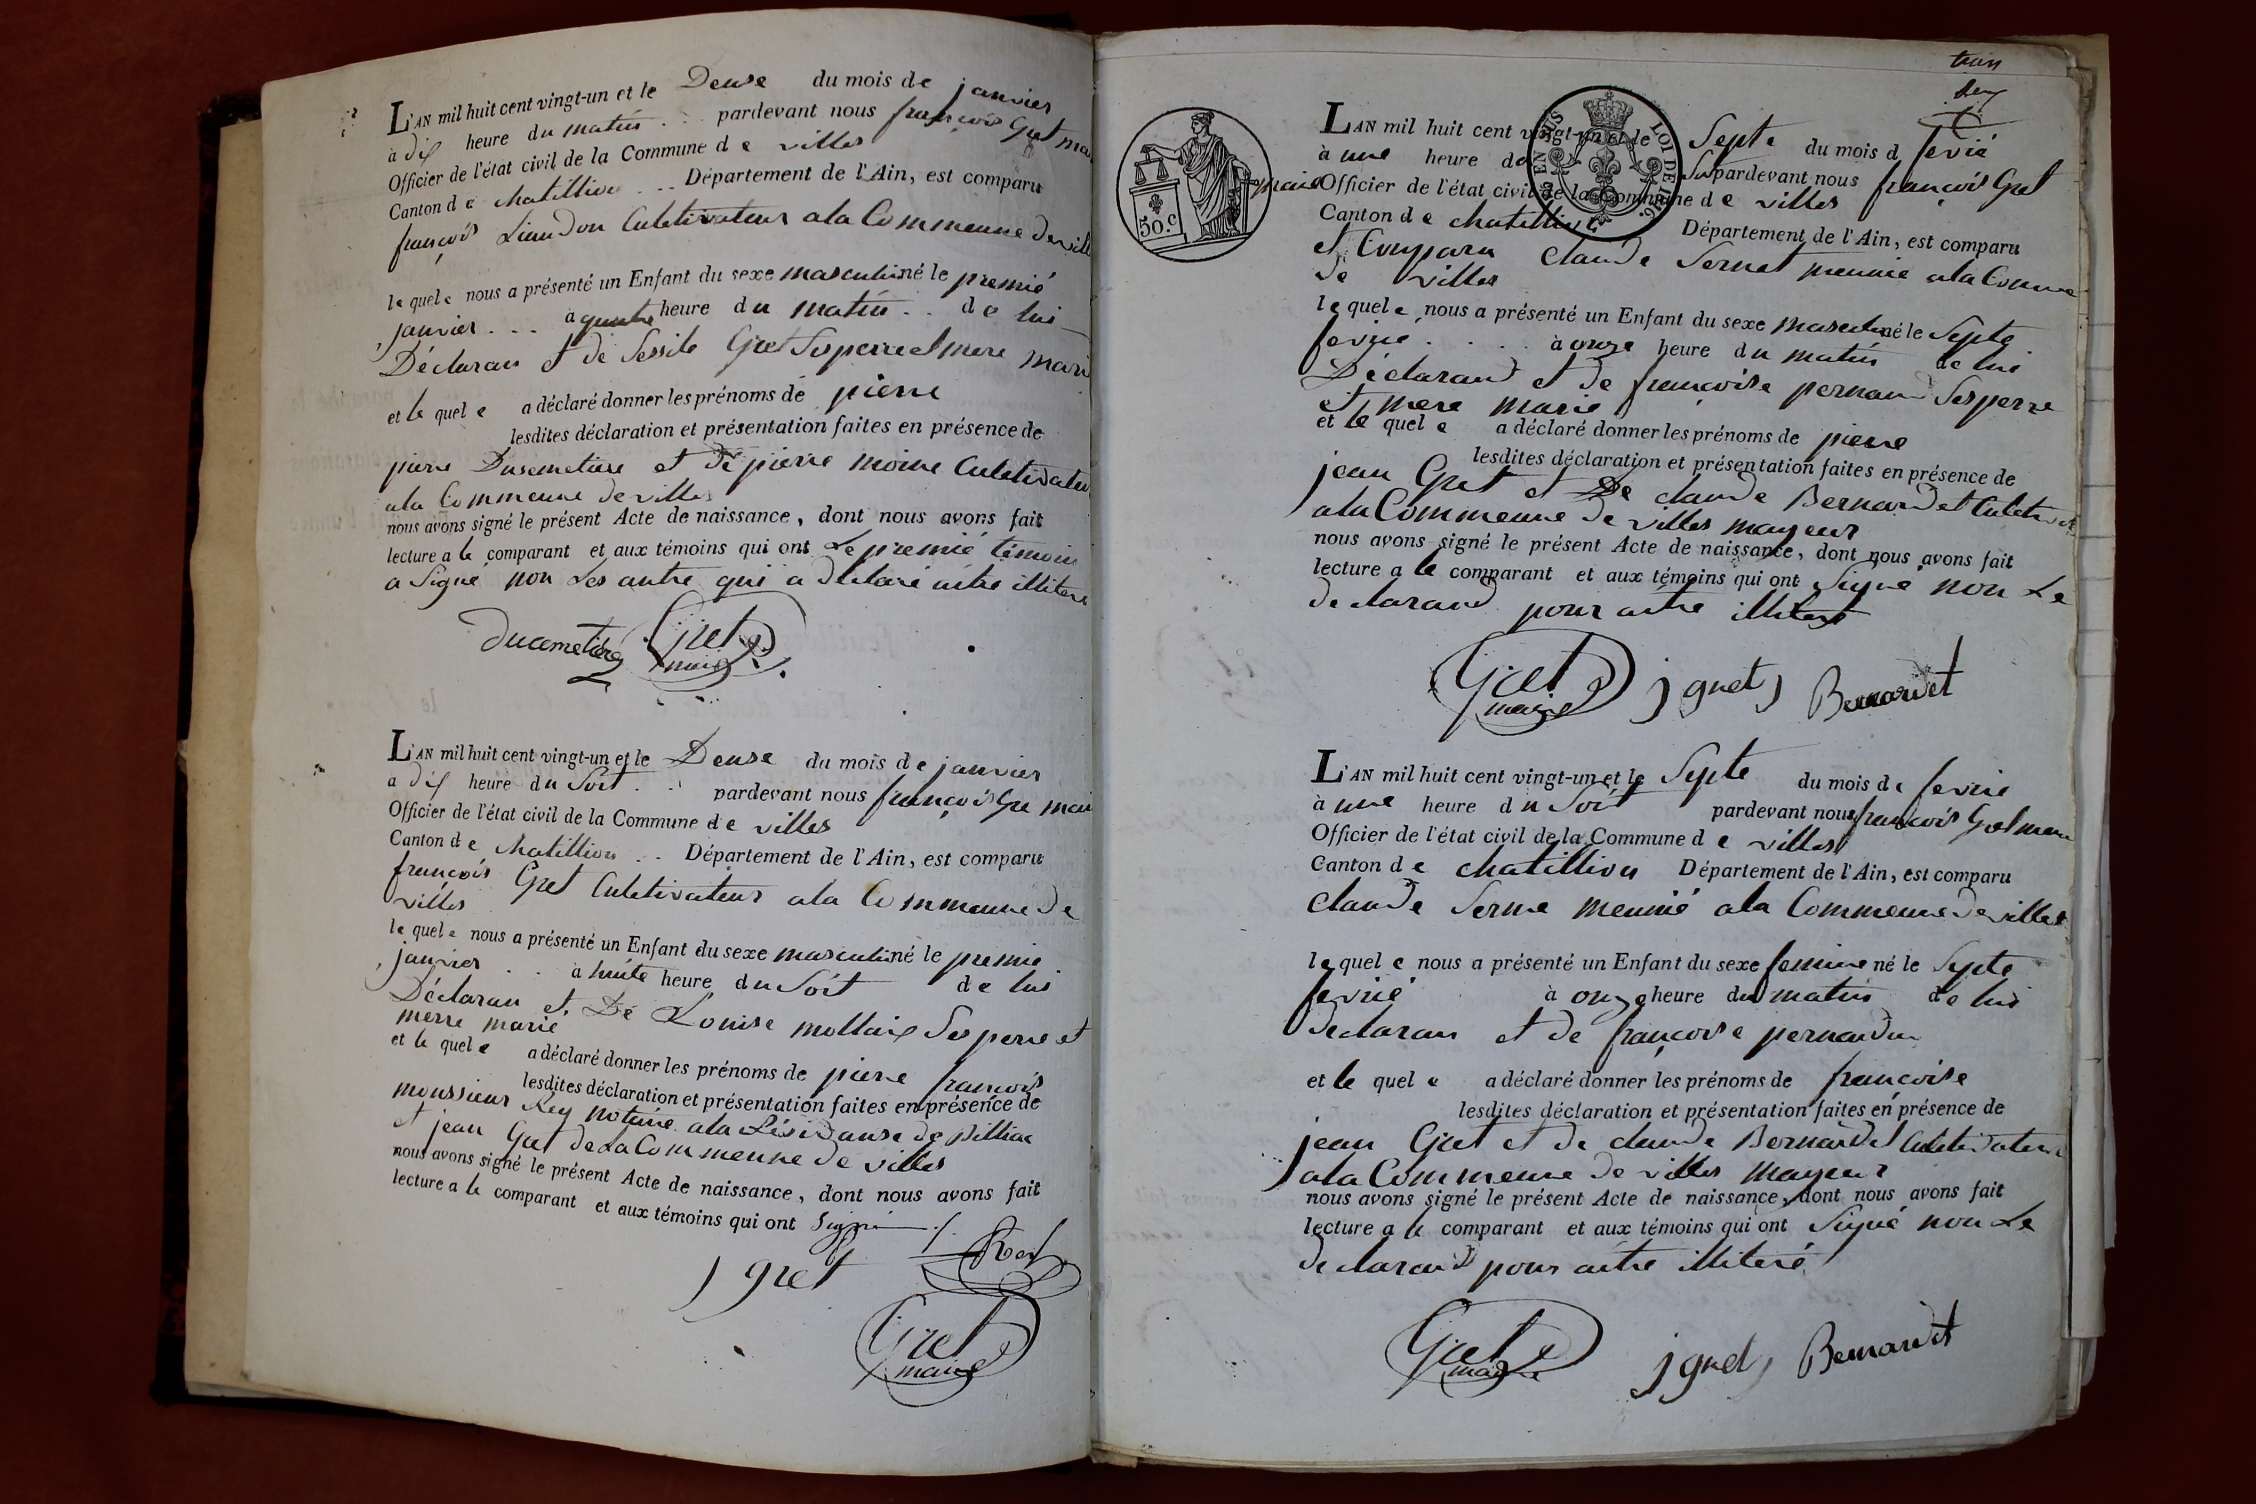 L'AN mil huit cent vingt-un et le Deuse du mois de janvier
à dix heure du matin . . pardevant nous françois Gret mai
Officier de l'état civil de la Commune de villes
Canton de chatillion . . Département de l'Ain, est comparu
françois Liaudon Culetivateur a la Commeune de ville
le quele nous a présenté un Enfant du sexe masculin né le premié
janvier . . . à heure du matin . . de lui
Déclaran et de Sessile Gret Ses perre et mere marie
et le quel e a déclaré donner les prénoms de pierre
lesdites déclaration et présentation faites en présence de
pierre Dusemetiere et de pierre moine Culetivateu
a la Commeune de villes
nous avons signé le présent Acte de naissance, dont nous avons fait
lecture a le comparant et aux témoins qui ont Le premié témoin
a Signé non Les autre qui a déclaré aitre illiteré
Ducemetiere Gret
maire
L'AN mil huit cent vingt-un et le Deuse du mois de janvier
a dix heure du Soit . . pardevant nous françois Gre mair
Officier de l'état civil de la Commune de villes
Canton de chatillion . . Département de l'Ain, est comparu
françois Gret Culetivateur a la Commeune de
villes
le quele nous a présenté un Enfant du sexe masculin né le premie
janvier . . à huite heure du Soit de lui
Déclaran et De Louise moltaix Ses perre et
merre marié
et le quel e a déclaré donner les prénoms de pierre françois
lesdites déclaration et présentation faites en présence de
monssieur Rey notaire a la Résidanse de Billiat
et jean Gret de La Commeune de villes
nous avons signé le présent Acte de naissance, dont nous avons fait
lecture a le comparant et aux témoins qui ont Signé
Rey
J gret
Gret
maire
deux
50.c
LOI DE 1816
L'AN mil huit cent vingt-un et le Septe du mois d fevié
à une heure du Soit pardevant nous françois Gret
maire Officier de l'état civil de la Commune de villes
Canton de chatillion Département de l'Ain, est comparu
et Comparu claude Sernet meunié a la Comme
de villes
le quel e nous a présenté un Enfant du sexe masculin né le Septe
fevrié . . . . à onze heure du matin de lui
Déclarand et de françoise pernaud Ses perre
et mere marié
et le quel e a déclaré donner les prénoms de pierre
lesdites déclaration et présentation faites en présence de
jean Gret et De claude Bernardet Culetivate
a la Commeune de villes mayeur
nous avons signé le présent Acte de naissance, dont nous avons fait
lecture a le comparant et aux témoins qui ont Signé non Le
declarand pour aitre illiteré
Gret J gret Bernardet
maire
L'AN mil huit cent vingt-un et le Septe du mois de fevrié
à une heure du Soit pardevant nous françois Gret maire
Officier de l'état civil de la Commune de villes
Canton de chatillion Département de l'Ain, est comparu
claude Serme meunié a la Commeune de villes
le quel e nous a présenté un Enfant du sexe feminine né le Septe
fevrié à onze heure du matin de lui
declaran et de françoise pernaudu
et le quel e a déclaré donner les prénoms de françoise
lesdites déclaration et présentation faites en présence de
jean Gret et de claude Bernardet Culetivateur
a la Commeune de villes mayeur
nous avons signé le présent Acte de naissance, dont nous avons fait
lecture a le comparant et aux témoins qui ont Signé non Le
declarand pour aitre illiteré
Gret J gret Bernardet
maire